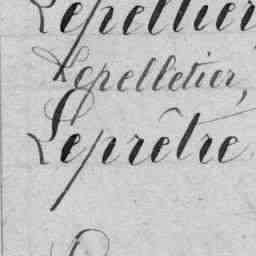 Lepeltier
Lepelletier,
Leprêtre